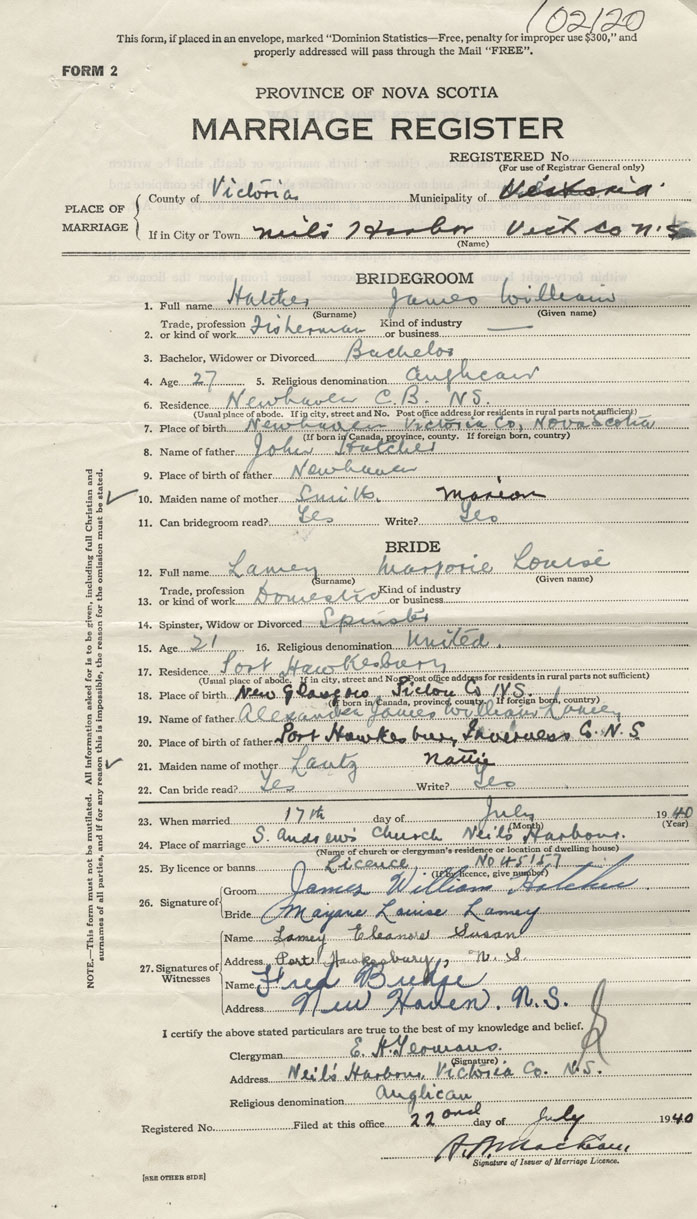 102120
This form, if placed in an envelope, marked "Dominion Statistics—Free, penalty for improper use $300," and
properly addressed will pass through the Mail "FREE".
FORM 2
PROVINCE OF NOVA SCOTIA
MARRIAGE REGISTER
REGISTERED No.
(For use of Registrar General only)
PLACE OF MARRIAGE
County of Victoria Municipality of Victoria
If in City or Town Neils Harbor Vict Co N.S
(Name)
BRIDEGROOM
1. Full name Hatcher James William
(Surname) (Given name)
2. Trade, profession or kind of work Fisherman Kind of industry or business —
3. Bachelor, Widower or Divorced Bachelor
4. Age 27 5. Religious denomination Anglican
6. Residence Newhaven C.B. N.S.
(Usual place of abode. If in city, street and No. Post office address for residents in rural parts not sufficient)
7. Place of birth Newhaven Victoria Co, Nova Scotia
(If born in Canada, province, county. If foreign born, country)
8. Name of father John Hatcher
9. Place of birth of father Newhaven
10. Maiden name of mother Smith. Marion
11. Can bridegroom read? Yes Write? Yes
BRIDE
12. Full name Lamey Marjorie Louise
(Surname) (Given name)
13. Trade, profession or kind of work Domestic Kind of industry or business
14. Spinster, Widow or Divorced Spinster
15. Age 21 16. Religious denomination United.
17. Residence Port Hawkesbury
(Usual place of abode. If in city, street and No. Post office address for residents in rural parts not sufficient)
18. Place of birth New Glasgow Pictou Co N.S.
(If born in Canada, province, county. If foreign born, country)
19. Name of father Alexander James William Lamey
20. Place of birth of father Port Hawkesbury, Inverness Co. N.S
21. Maiden name of mother Lantz Nattie
22. Can bride read? Yes Write? Yes
23. When married 17th day of July 1940
(Month) (Year)
24. Place of marriage S. Andrew's Church Neil's Harbour.
(Name of church or clergyman's residence or location of dwelling house)
25. By licence or banns Licence, No 45157
(If by licence, give number)
26. Signature of
Groom James William Hatcher
Bride Marjorie Louise Lamey
27. Signatures of Witnesses
Name Lamey Eleanore Susan
Address Port Hawkesbury, N. S.
Name Fred Budge
Address New Haven. N.S.
I certify the above stated particulars are true to the best of my knowledge and belief.
Clergyman E. H. Yeomans.
(Signature)
Address Neil's Harbour, Victoria Co. N.S.
Religious denomination Anglican
Registered No. Filed at this office 22ond day of July 1940
Signature of Issuer of Marriage Licence.
[SEE OTHER SIDE]
NOTE.—This form must not be mutilated. All information asked for is to be given, including full Christian and
surnames of all parties, and if for any reason this is impossible, the reason for the omission must be stated.